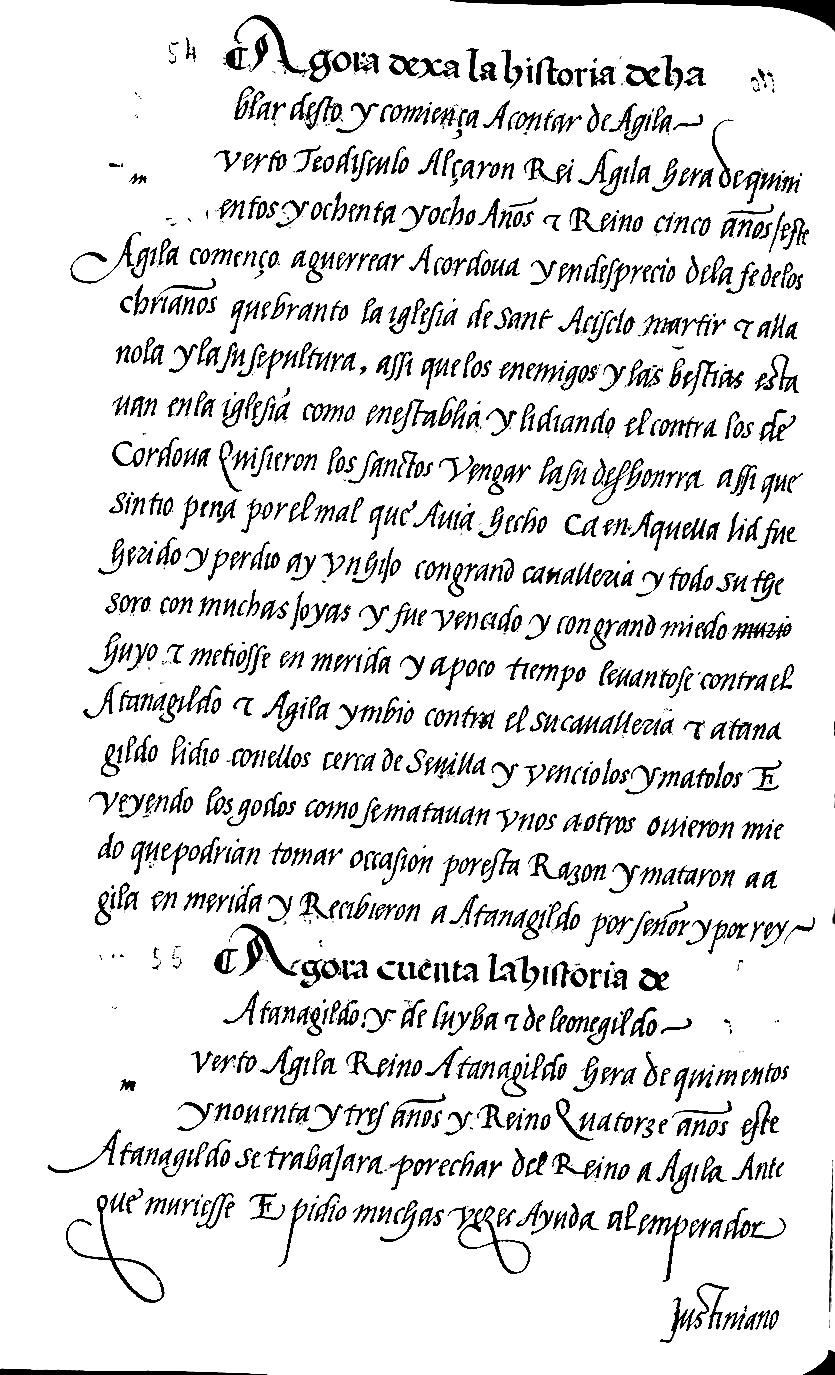 54 Agora dexa la historia de ha
blar desto y comiença Acontar de Agila
m verto Teodisculo Alçaron Rei Agila hera de quini
entos y ochenta y ocho Años τ Reino cinco años / este
Agila començo aguerrear Acordoua y en desprecio dela fe de los
chrianos quebranto la iglesia de Sant Acisclo martir τ alla
nola y la su sepultura, assi que los enemigos y las bestias esta
uan en la iglesia como enestablia y lidiando el contra los de
Cordoua Quisieron los sanctos Vengar la su deshonrra assi que
sintio pena por el mal que Auia hecho Ca en Aquella lid fue
herido y perdio ay vn hijo congrand caualleria y todo su the
soro con muchas joyas y fue vencido y con grand miedo murio
huyo τ metiosse en merida y apoco tiempo leuantose contra el
Atanagildo τ Agila ymbio contra el su caualleria τ atana
gildo lidio conellos cerca de Seuilla y venciolos y matolos E
veyendo los godos como se matauan vnos a otros ouieron mie
do que podrian tomar occasion por esta Razon y mataron a a
gila en merida y Recibieron a Atanagildo por señor y por rey
55 Agora cuenta la historia de
Atanagildo y de luyba τ de leonegildo
m verto Agila Reino Atanagildo hera de quinientos
y nouenta y tres años y Reino Quatorze años este
Atanagildo se trabajara por echar del Reino a Agila Ante
que muriesse E pidio muchas vezes Ayuda al emperador
Justiniano